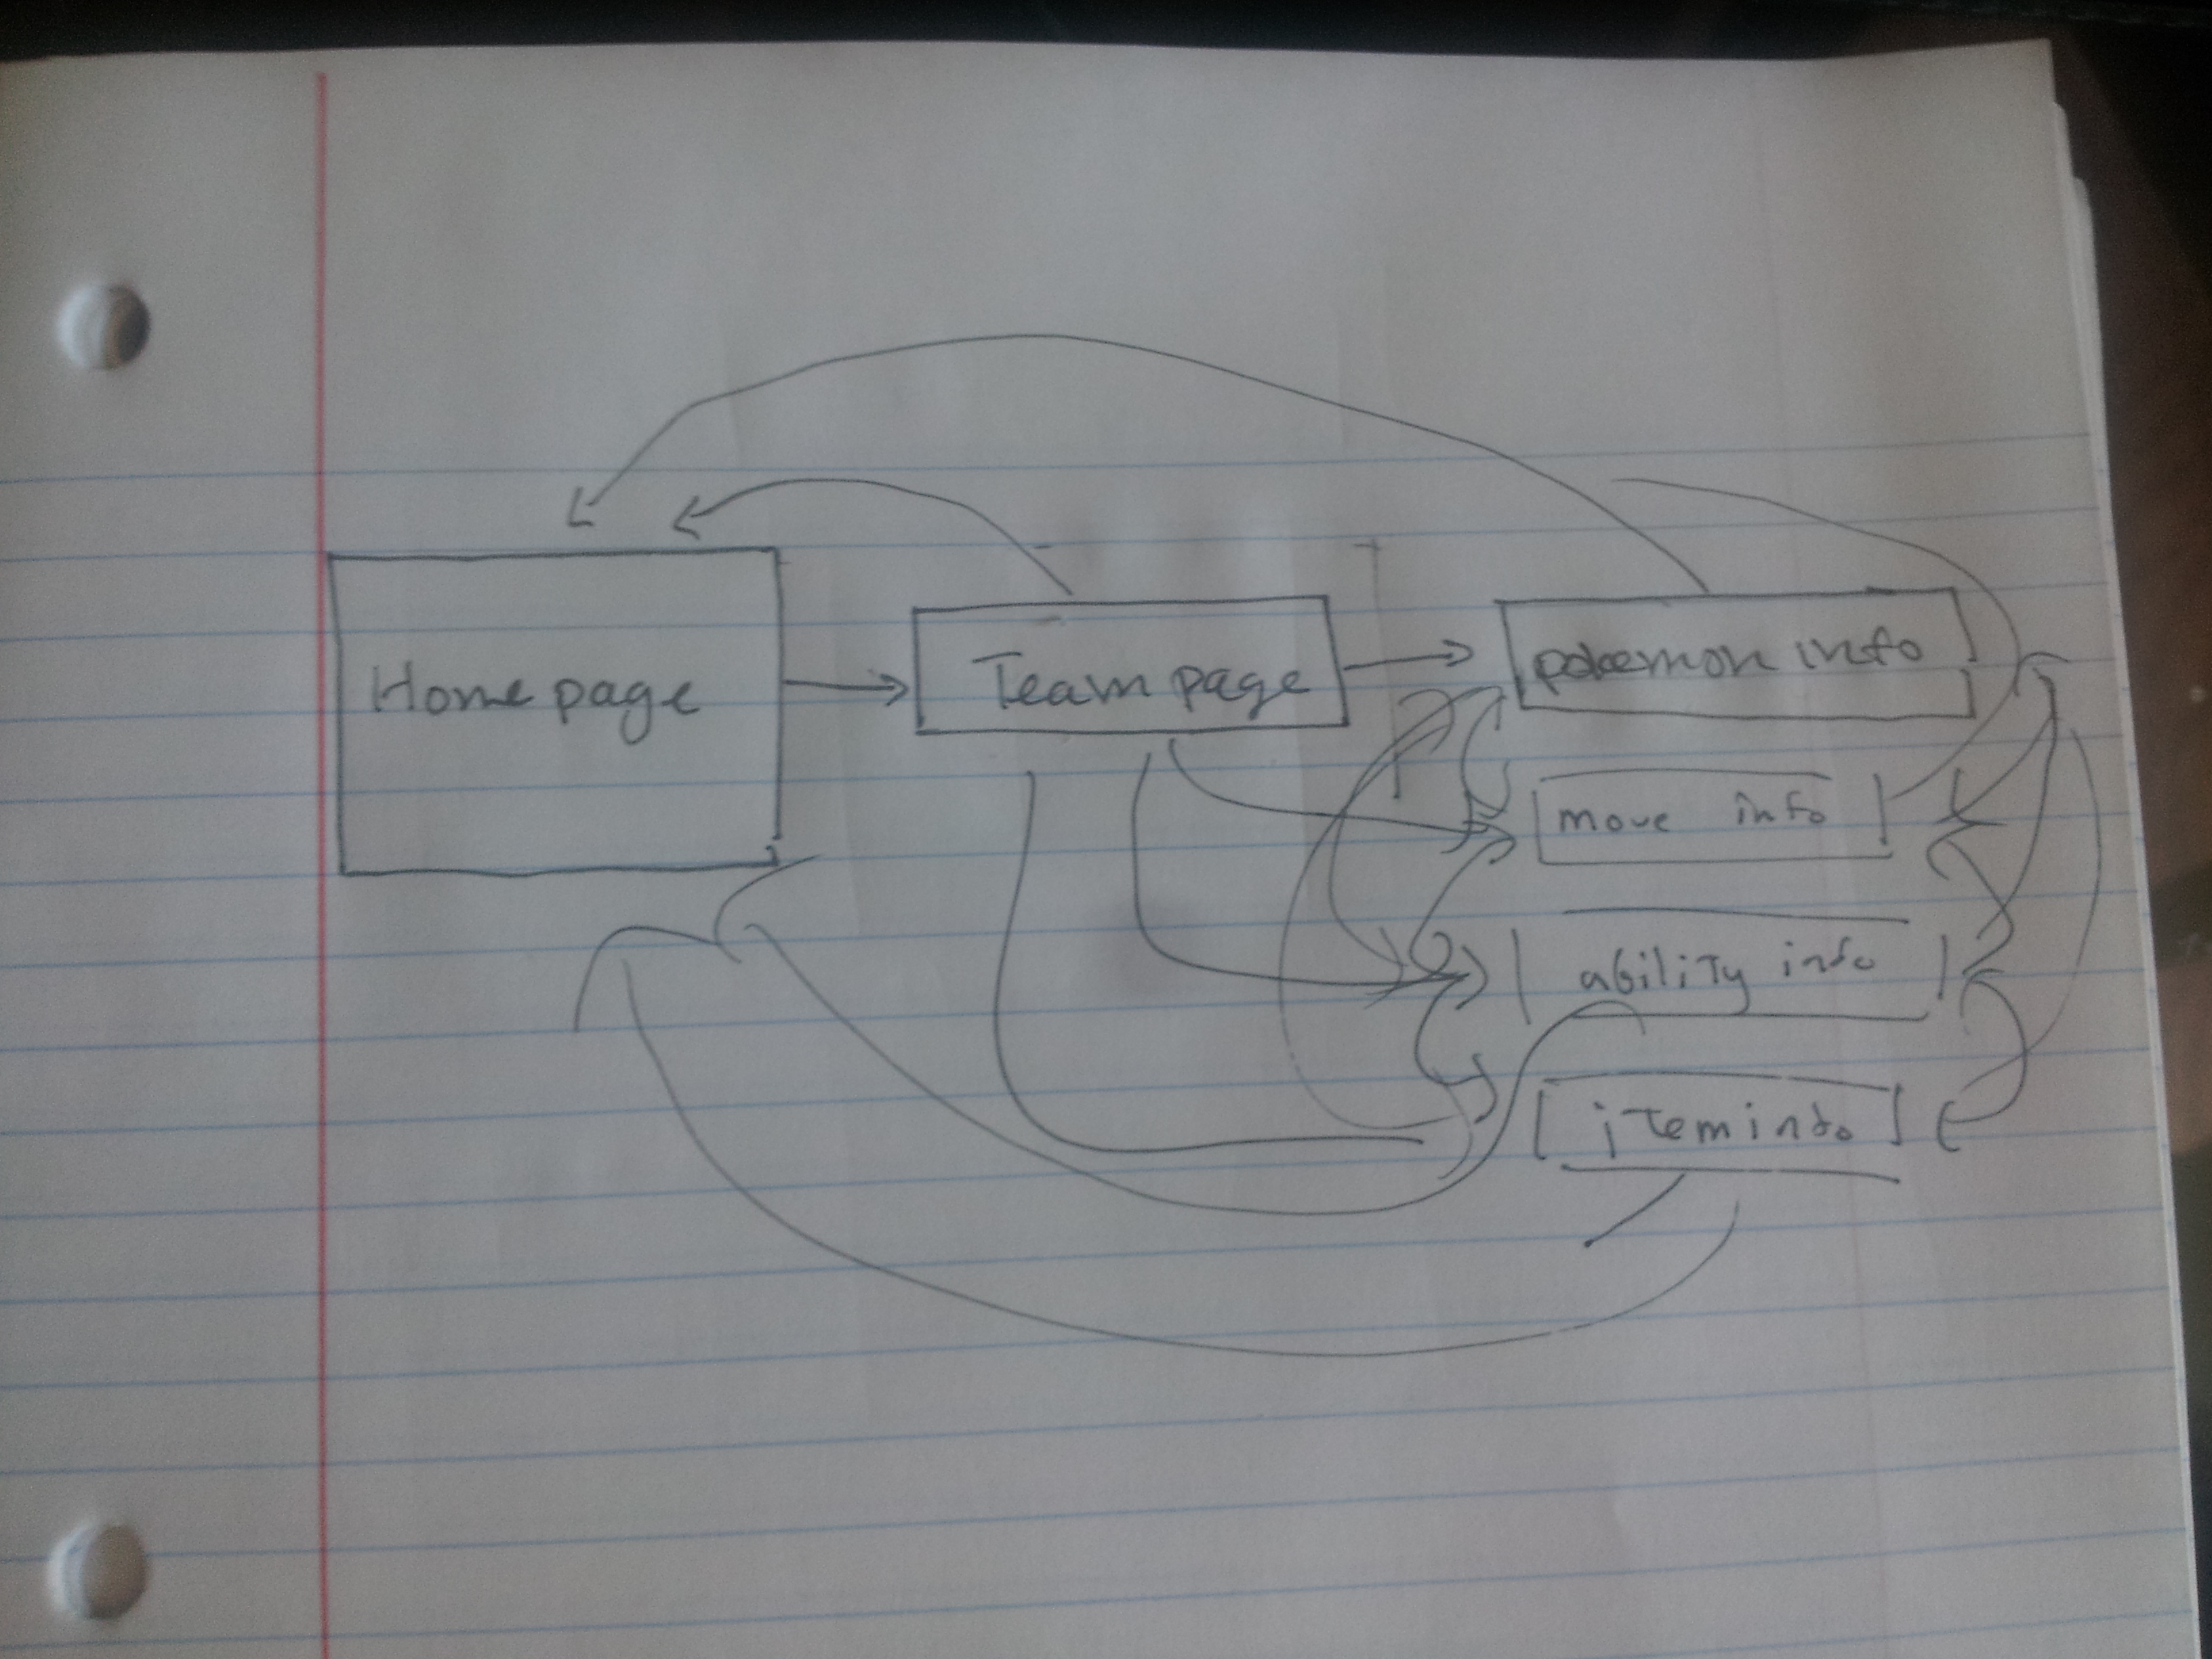 Home page
Team page
pokemon info
move info
ability info
item info